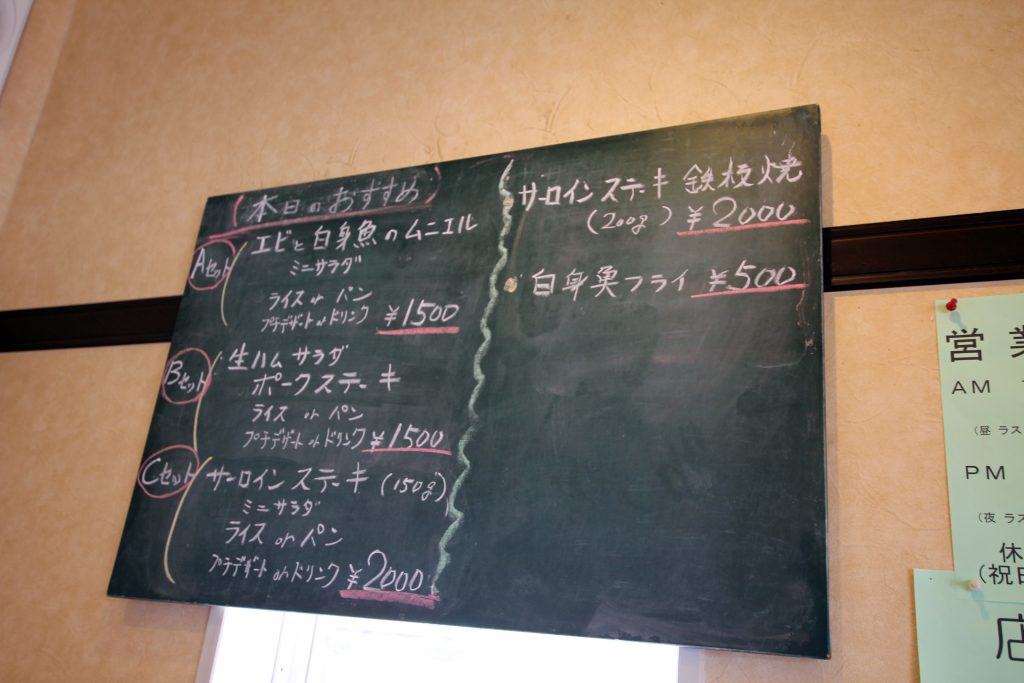 (本日のおすすめ)
Aセット
エビと白身魚のムニエル
ミニサラダ
ライス or パン
プチデザート or ドリンク ¥1500
Bセット
生ハムサラダ
ポークステーキ
ライス or パン
プチデザート or ドリンク ¥1500
Cセット
サーロインステーキ (150g)
ミニサラダ
ライス or パン
プチデザート or ドリンク ¥2000
サーロインステーキ 鉄板焼
(200g) ¥2000
白身魚フライ ¥500
営業
AM
(昼 ラス
PM
(夜 ラス
休
(祝日
店